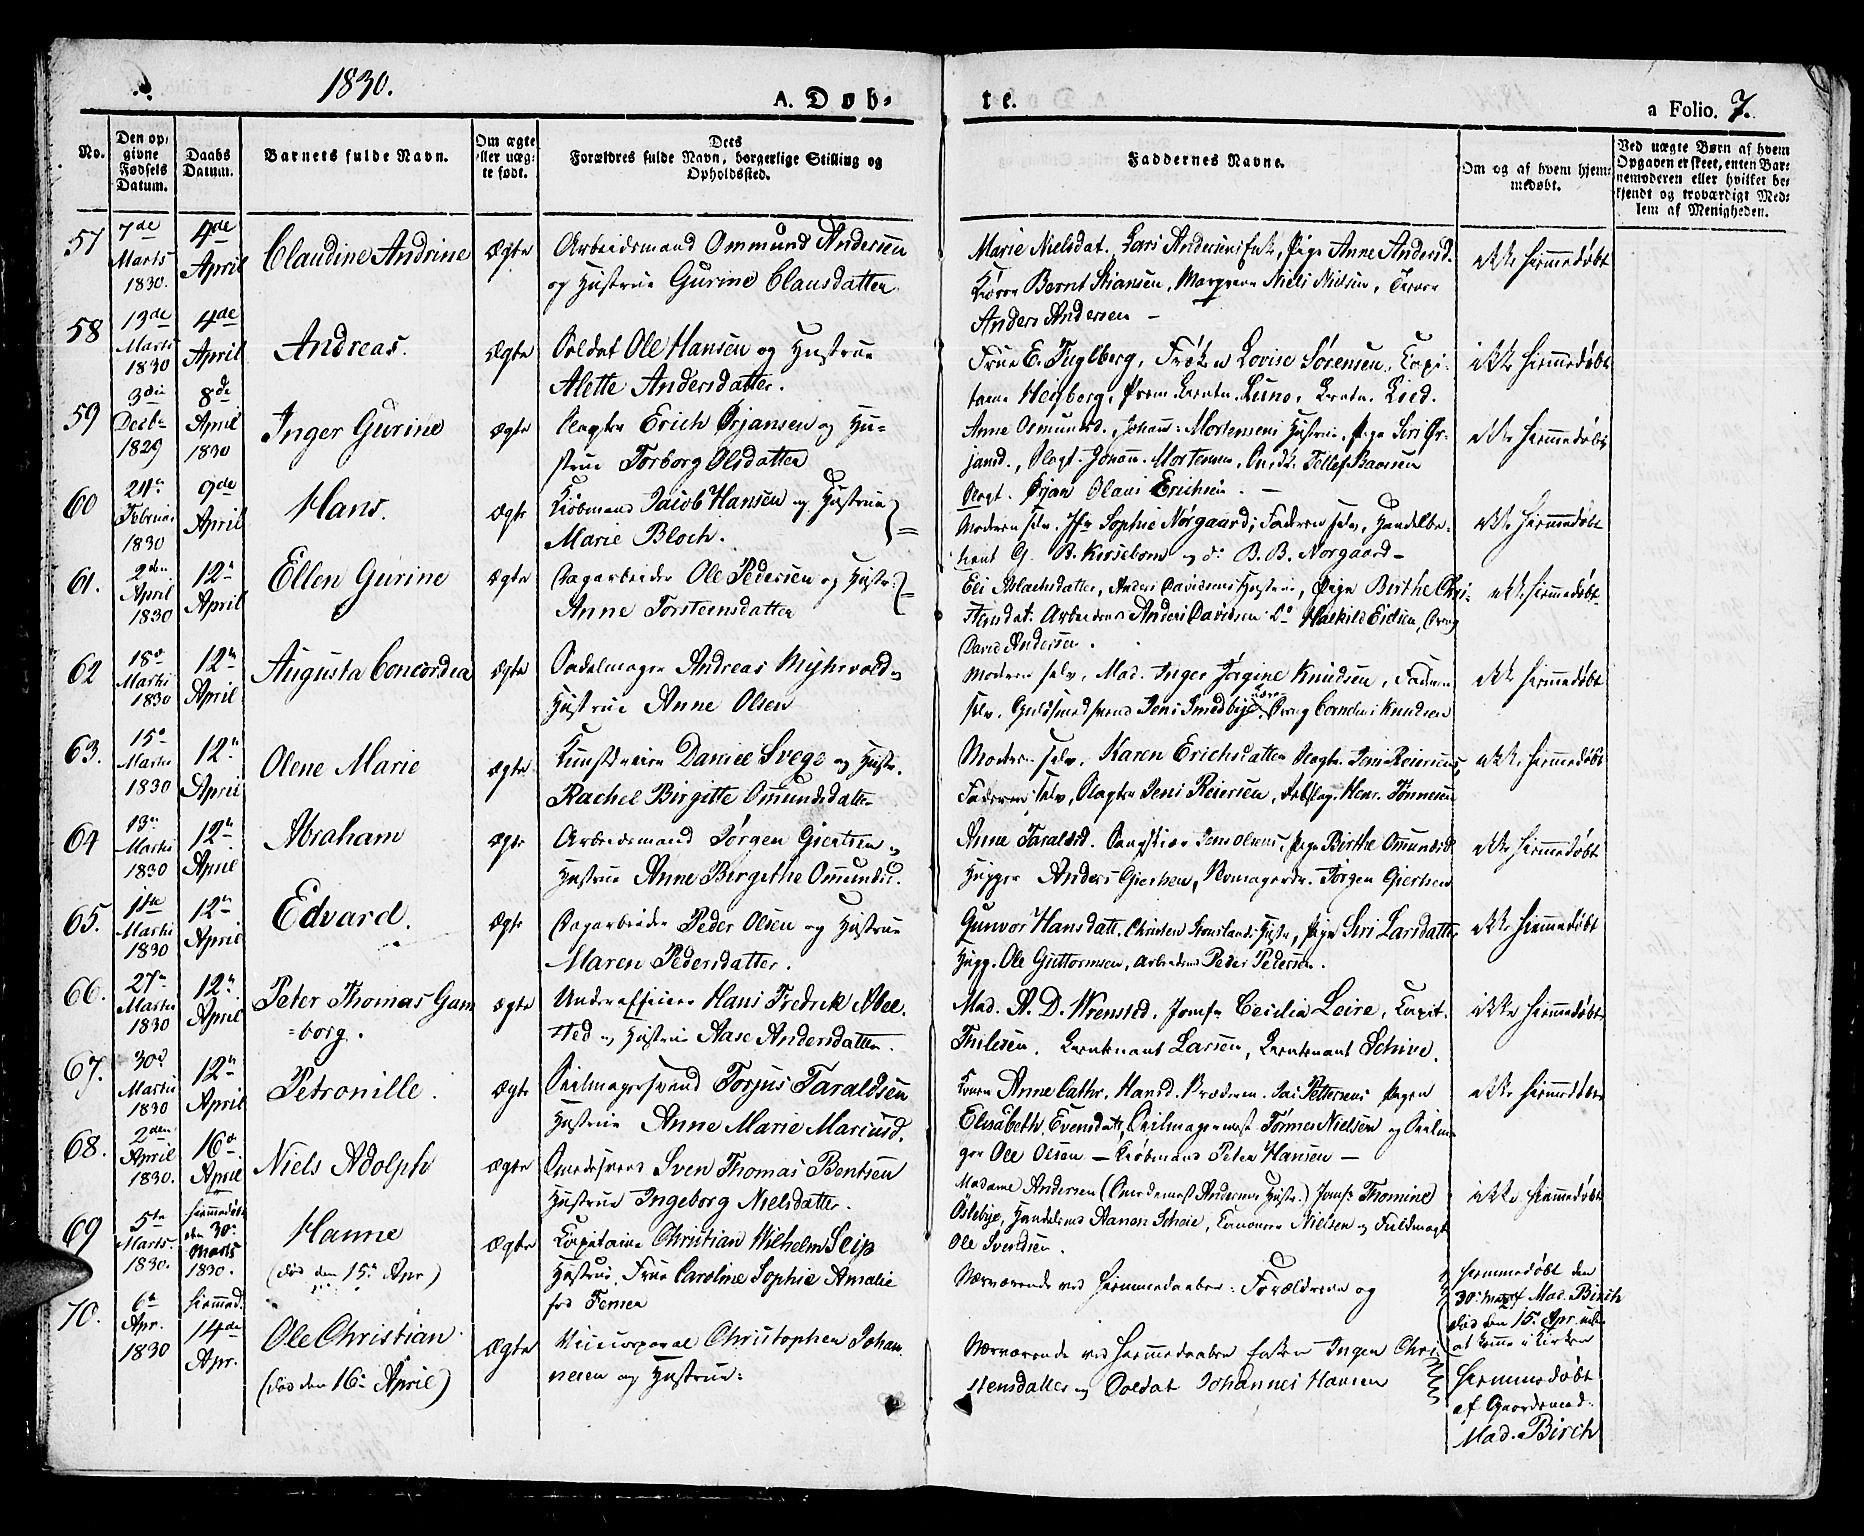 1830.
A. Døb-
te.
a Folio. 7.
No.
Den op-
givne
Fødsels
Datum.
Daabs
Datum.
Barnets fulde Navn.
Om ægte
eller uæg-
te født.
Dets
Forældres fulde Navn, borgerlige Stilling og
Opholdssted.
Faddernes Navne.
Om og af hvem hjem-
medøbt.
Ved uægte Børn af hvem
Opgaven er skeet, enten Bar-
nemoderen eller hvilket be-
kjendt og troværdigt Med-
lem af Menigheden.
57
7de
Marts
1830.
4de
April
Claudine Andrine
ægte
Arbeidsmand Ommund Andersen
og Hustrue Gurine Clausdatter
Marie Nielsdat. Lars Andersens Enke, Pige Anne Andersd.
Bernt Niels Nielsen,
Anders Andersen –
ikke hiemmedøbt
58
13de
Marts
1830
4de
April
Andreas.
ægte
Soldat Ole Hansen og Hustrue
Alette Andersdatter.
Frue E. Fuglberg, Frøken Lovise Sørensen, Capi-
taine Heiberg, Prem. Lieutn. Luno, Lieutn. Lied.
ikke hiemmedøbt
59
3die
Decbr
1829
8de
April
1830
Inger Gurine
ægte
Slagter Erich Ørjansen og Hu-
strue Torborg Olsdatter
Anne Osmunds., Johan Mortensens Hustrue, Pige Siri Ør-
jansd., Slagt. Johan Mortensen, Tellef Baansen
Slagt. Ørjan Olaus Erichsen. –
ikke hiemmedøbt
60
24de
Februar
1830
9de
April
Hans.
ægte
Kiøbmand Jacob Hansen og Hustrue
Marie Bloch.
Moderen selv. Jfr Sophie Nørgaard; Faderen selv, Handelbe-
tient G. B. Kirsebom og do B. B. Norgaard –
ikke hiemmedøbt
61.
2den
April
1830
12te
April
Ellen Gurine
ægte
Dagarbeider Ole Pedersen og Hustr.
Anne Torsteensdatter
Eli Aslachsdatter, Anders Davidsens Hustrue, Pige Birthe Chri-
stensdat. Arbeidsm. Anders Davidsen do Halkild Eidsen, Dreng
David Andersen.
ikke hiemmedøbt
62
18de
Marts
1830
12te
April
Augusta Concordia
ægte
Sadelmager Andreas Myhrvold og
Hustrue Anne Olsen
Moderen selv, Mad. Inger Jørgine Knudsen, Faderen
selv. Guldsmedsvend Jens Smedbye, Dreng Cornelius Knudsen
ikke hiemmedøbt
63.
15de
Marts
1830
12te
April
Olene Marie
ægte
Daniel Svege og Hustr.
Rachel Birgitte Omundsdatter
Moderen selv. Karen Erichsdatter Slagter Jens Reiersens,
Faderen selv, Slagter Jens Reiersen, Henr. Tønnesen
ikke hiemmedøbt
64
13de
Marts
1830
12te
April
Abraham
ægte
Arbeidsmand Jørgen Giertsen og
Hustrue Anne Birgithe Omundsd.
Anne Taraldsd. Jens Olsens, Pige Birthe Omundsd.
Hugger Anders Giertsen, Jørgen Giertsen
ikke hiemmedøbt
65.
11te
Marts
1830
12te
April
Edvard.
ægte
Dagarbeider Peder Olsen og Hustrue
Maren Pedersdatter.
Gunvor Hansdatt. Christen Hustr., Pige Siri Larsdatter
Hugg. Ole Guttormsen, Arbeidsm. Peder Pedersen.
ikke hiemmedøbt
66.
27de
Marts
1830
12te
April
Peter Thomas Gam
=borg.
ægte
Underofficier Hans Fredrik Abel.
sted og Hustrue Aase Andersdatter.
Mad. A. D. Wrensted. Jomfr Cecilia Leire, Capit.
Thilesen. Lieutenant Larsen, Lieutenant Schive.
ikke hiemmedøbt
67.
30de
Marts
1830
12te
April
Petronille.
ægte
Seilmagersvend Torjus Taraldsen
Hustrue Anne Marie Mariusd.
Konen Anne Cathr. Hansd. Pettersens Pigen
Elisabeth Evensdatt, Seilmagermest. Tørnes Nielsen og Seilma-
ger Ole Olsen – Kiøbmand Peter Hansen –
ikke hiemmedøbt
68.
2den
April
1830.
16de
April
Niels Adolph
ægte
Smedsvend Sven Thomas Bentsen
Hustrue Ingeborg Nielsdatter.
Madame Andersen (Smedemest. Andersens Hustr.) Jomfr Thomine
Oslebye, Handelsmd Aanon Schaie, Nielsen og Fuldmægt
Ole Svendsen.
ikke hiemmedøbt
69
5te
Marts.
1830.
hiemmedøbt
den 30te
Marts
1830.
Hanne
(død den 15de Apr.)
ægte
Capitaine Christian Wilhelm Seip
Hustrue Frue Caroline Sophie Amalie
fød
Nærværende ved Hiemmedaaben: Forældrene og
hiemmedøbt den
30te Marts af Mad. Birch
død den 15. Apr. uden
at komme i Kirken
70.
6te
Apr.
1830
hiemmed.
14de
Apr.
Ole Christian
(død den 16de April)
ægte
Vicecorporal Christopher Johan
nesen og Hustrue:
Nærværende ved Hiemmedaaben Enken Inger Chri-
stensdatter og Soldat Johannes Hansen
hiemmedøbt
af Gjordemod.
Mad. Birch